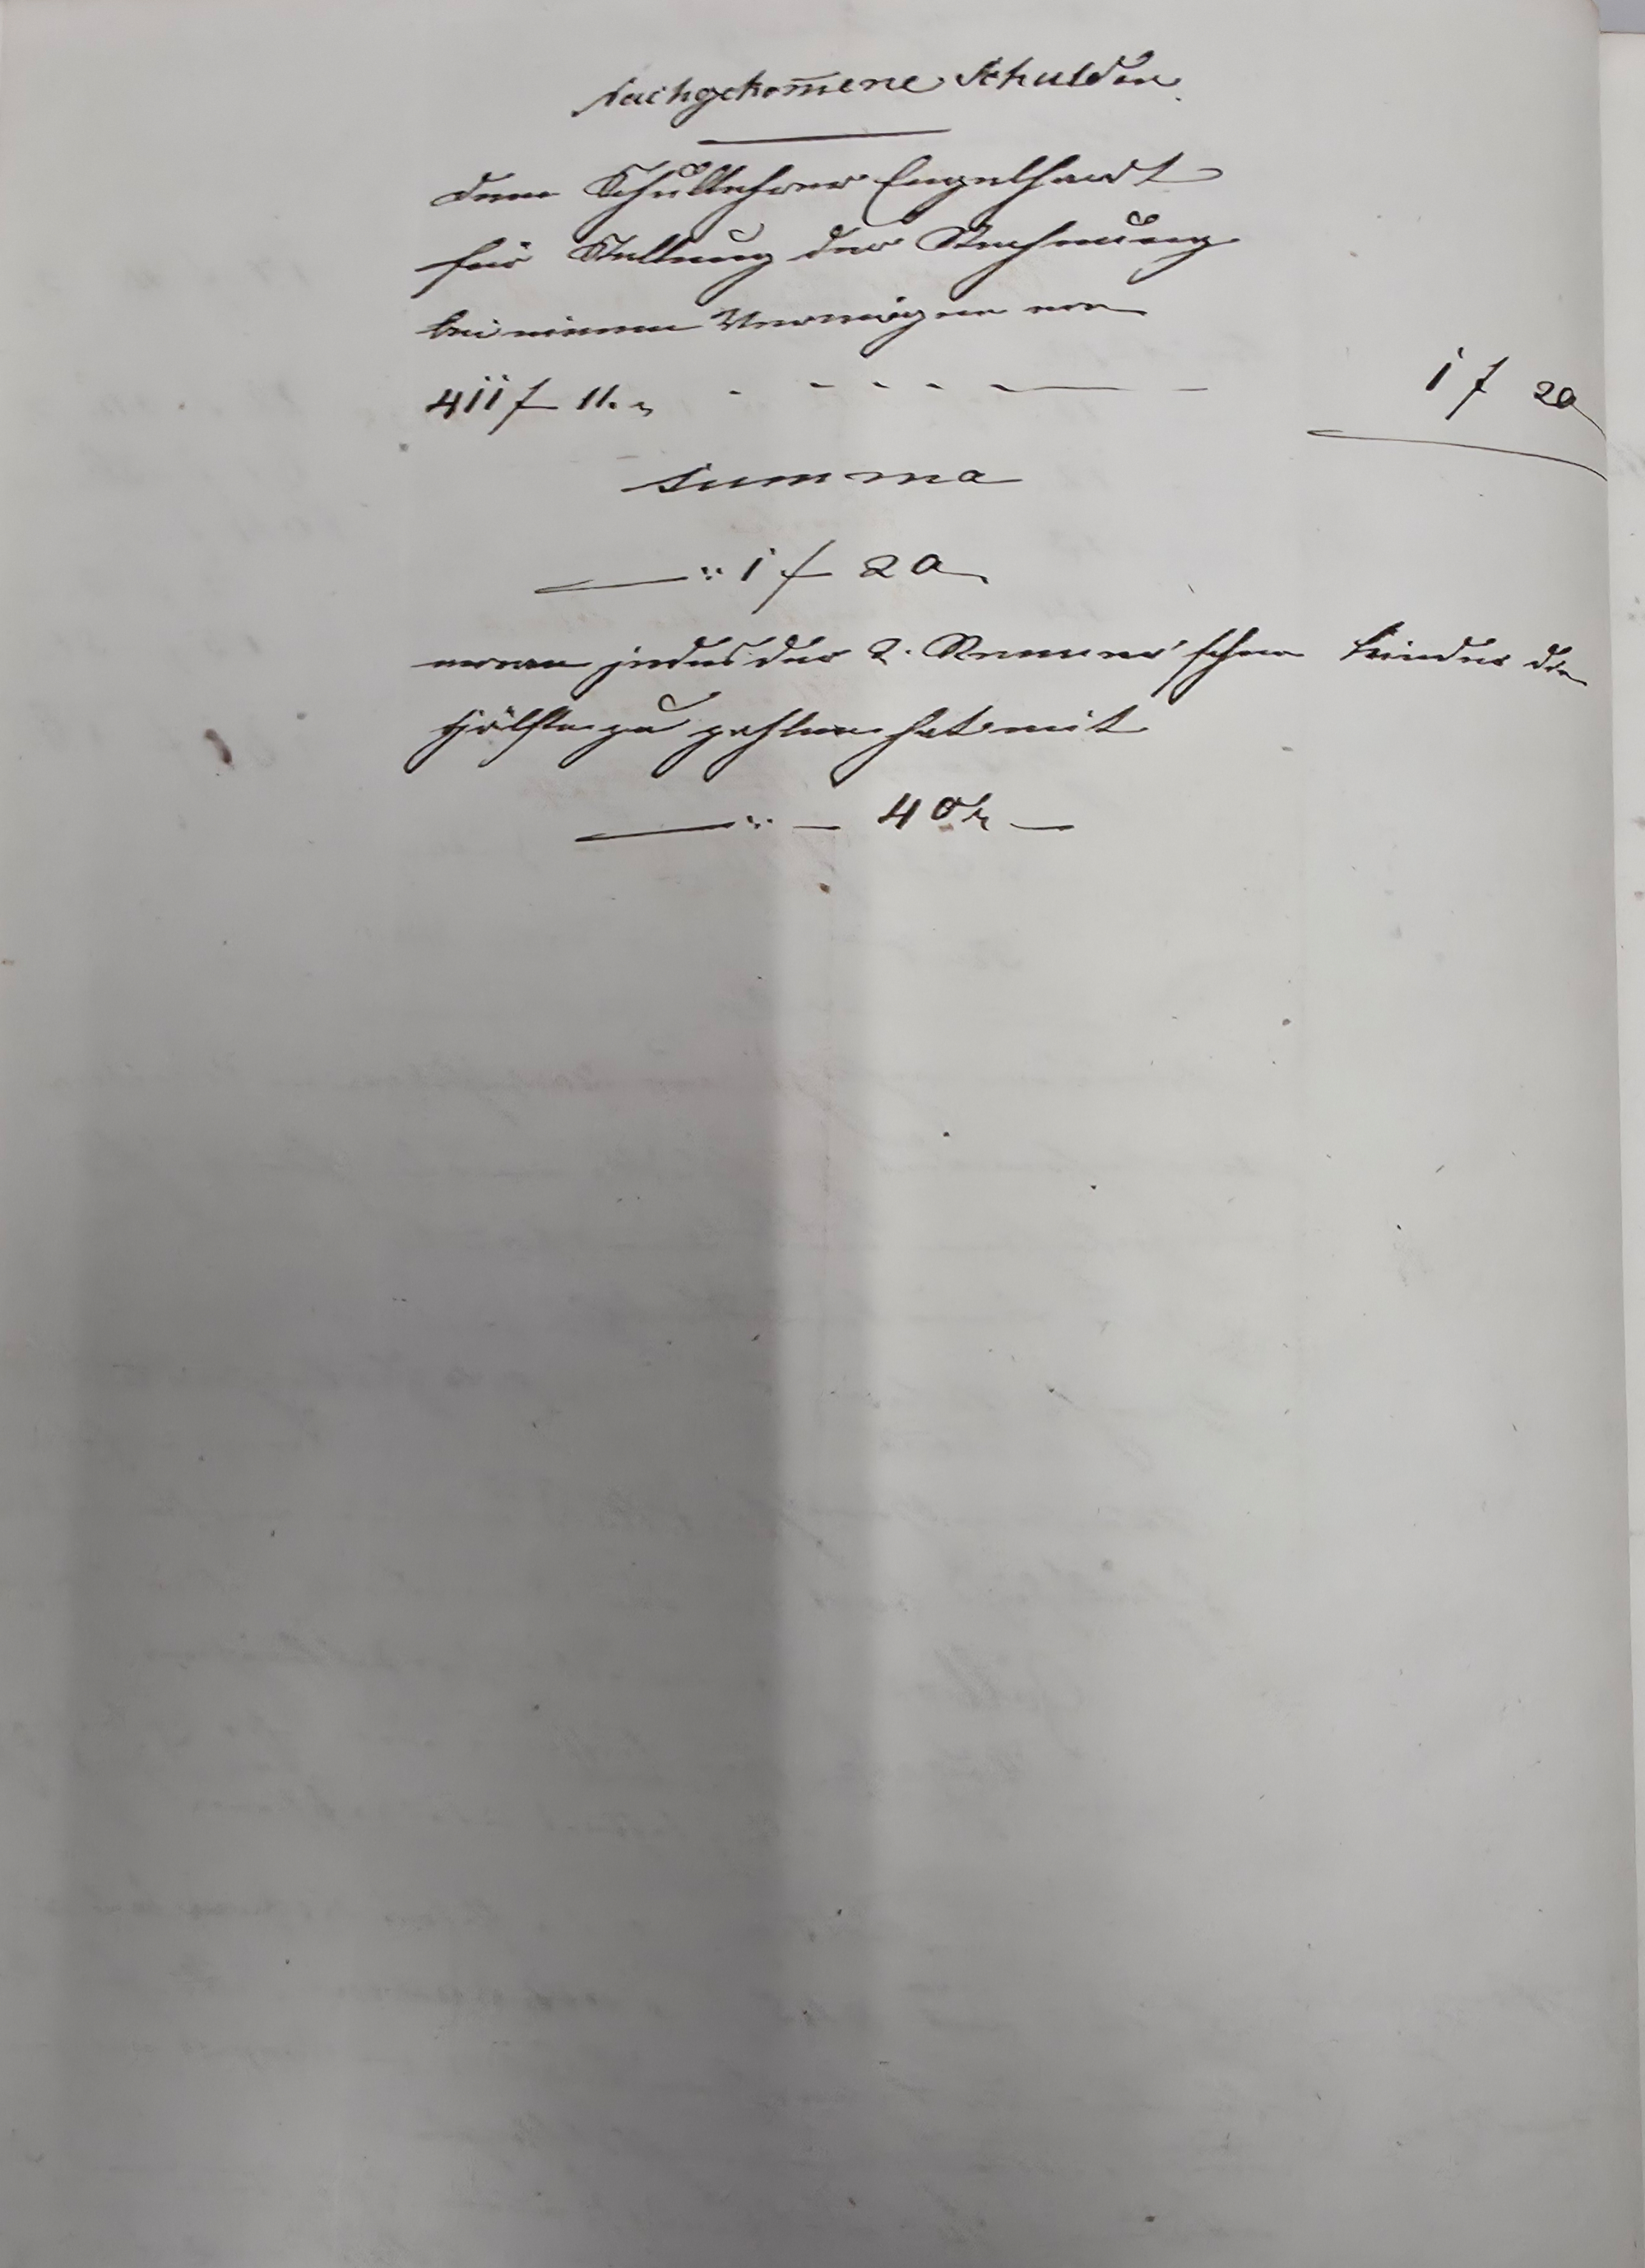 Nachgekom̅ene Schulden
dem Schullehrer Engelhardt
für Stellung der Rechnung
bei einem Vermögen von
411 f 11. x - - - - - — - 1 f 20
Summa
—" 1 f 20
woran jedes der 2. 'schen Kinder die
Hälfte zu zahlen hat mit
—" — 40 k —